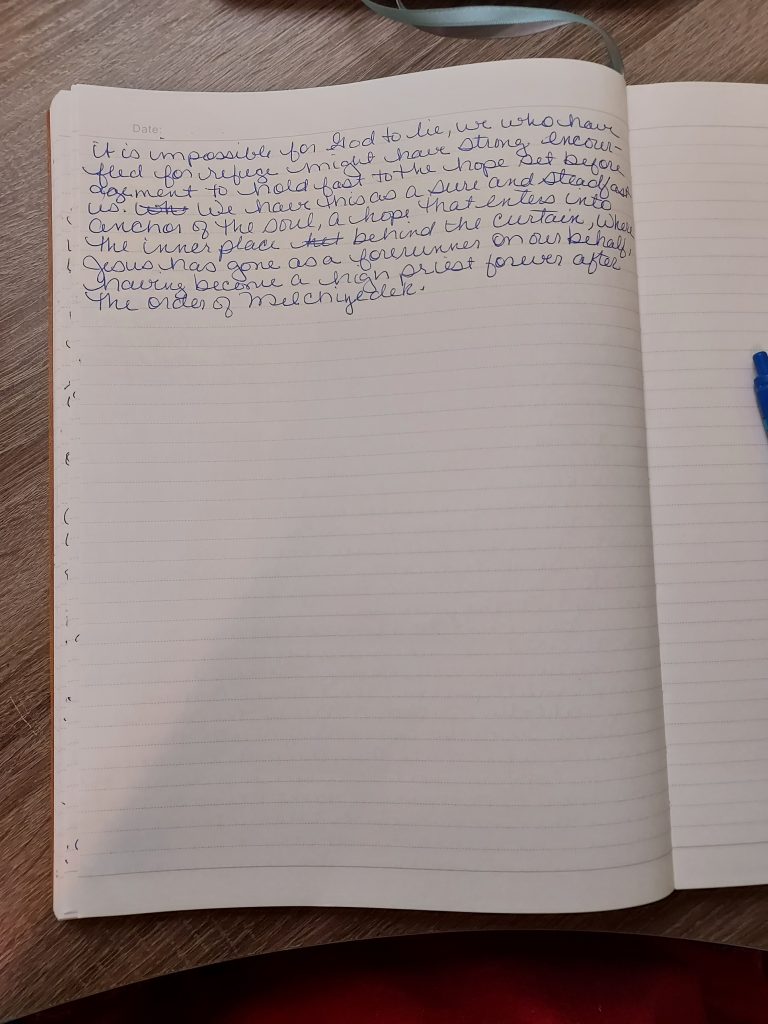 Date:
it is impossible for God to lie, we who have
fled for refuge might have strong encour-
agement to hold fast to the hope set before
us. We have this as a sure and steadfast
anchor of the soul, a hope that enters into
the inner place behind the curtain, where
Jesus has gone as a forerunner on our behalf,
having become a high priest forever after
the order of Melchizedek.